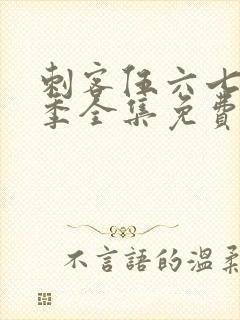 刺客伍六七
季全集免費
不言語的温柔